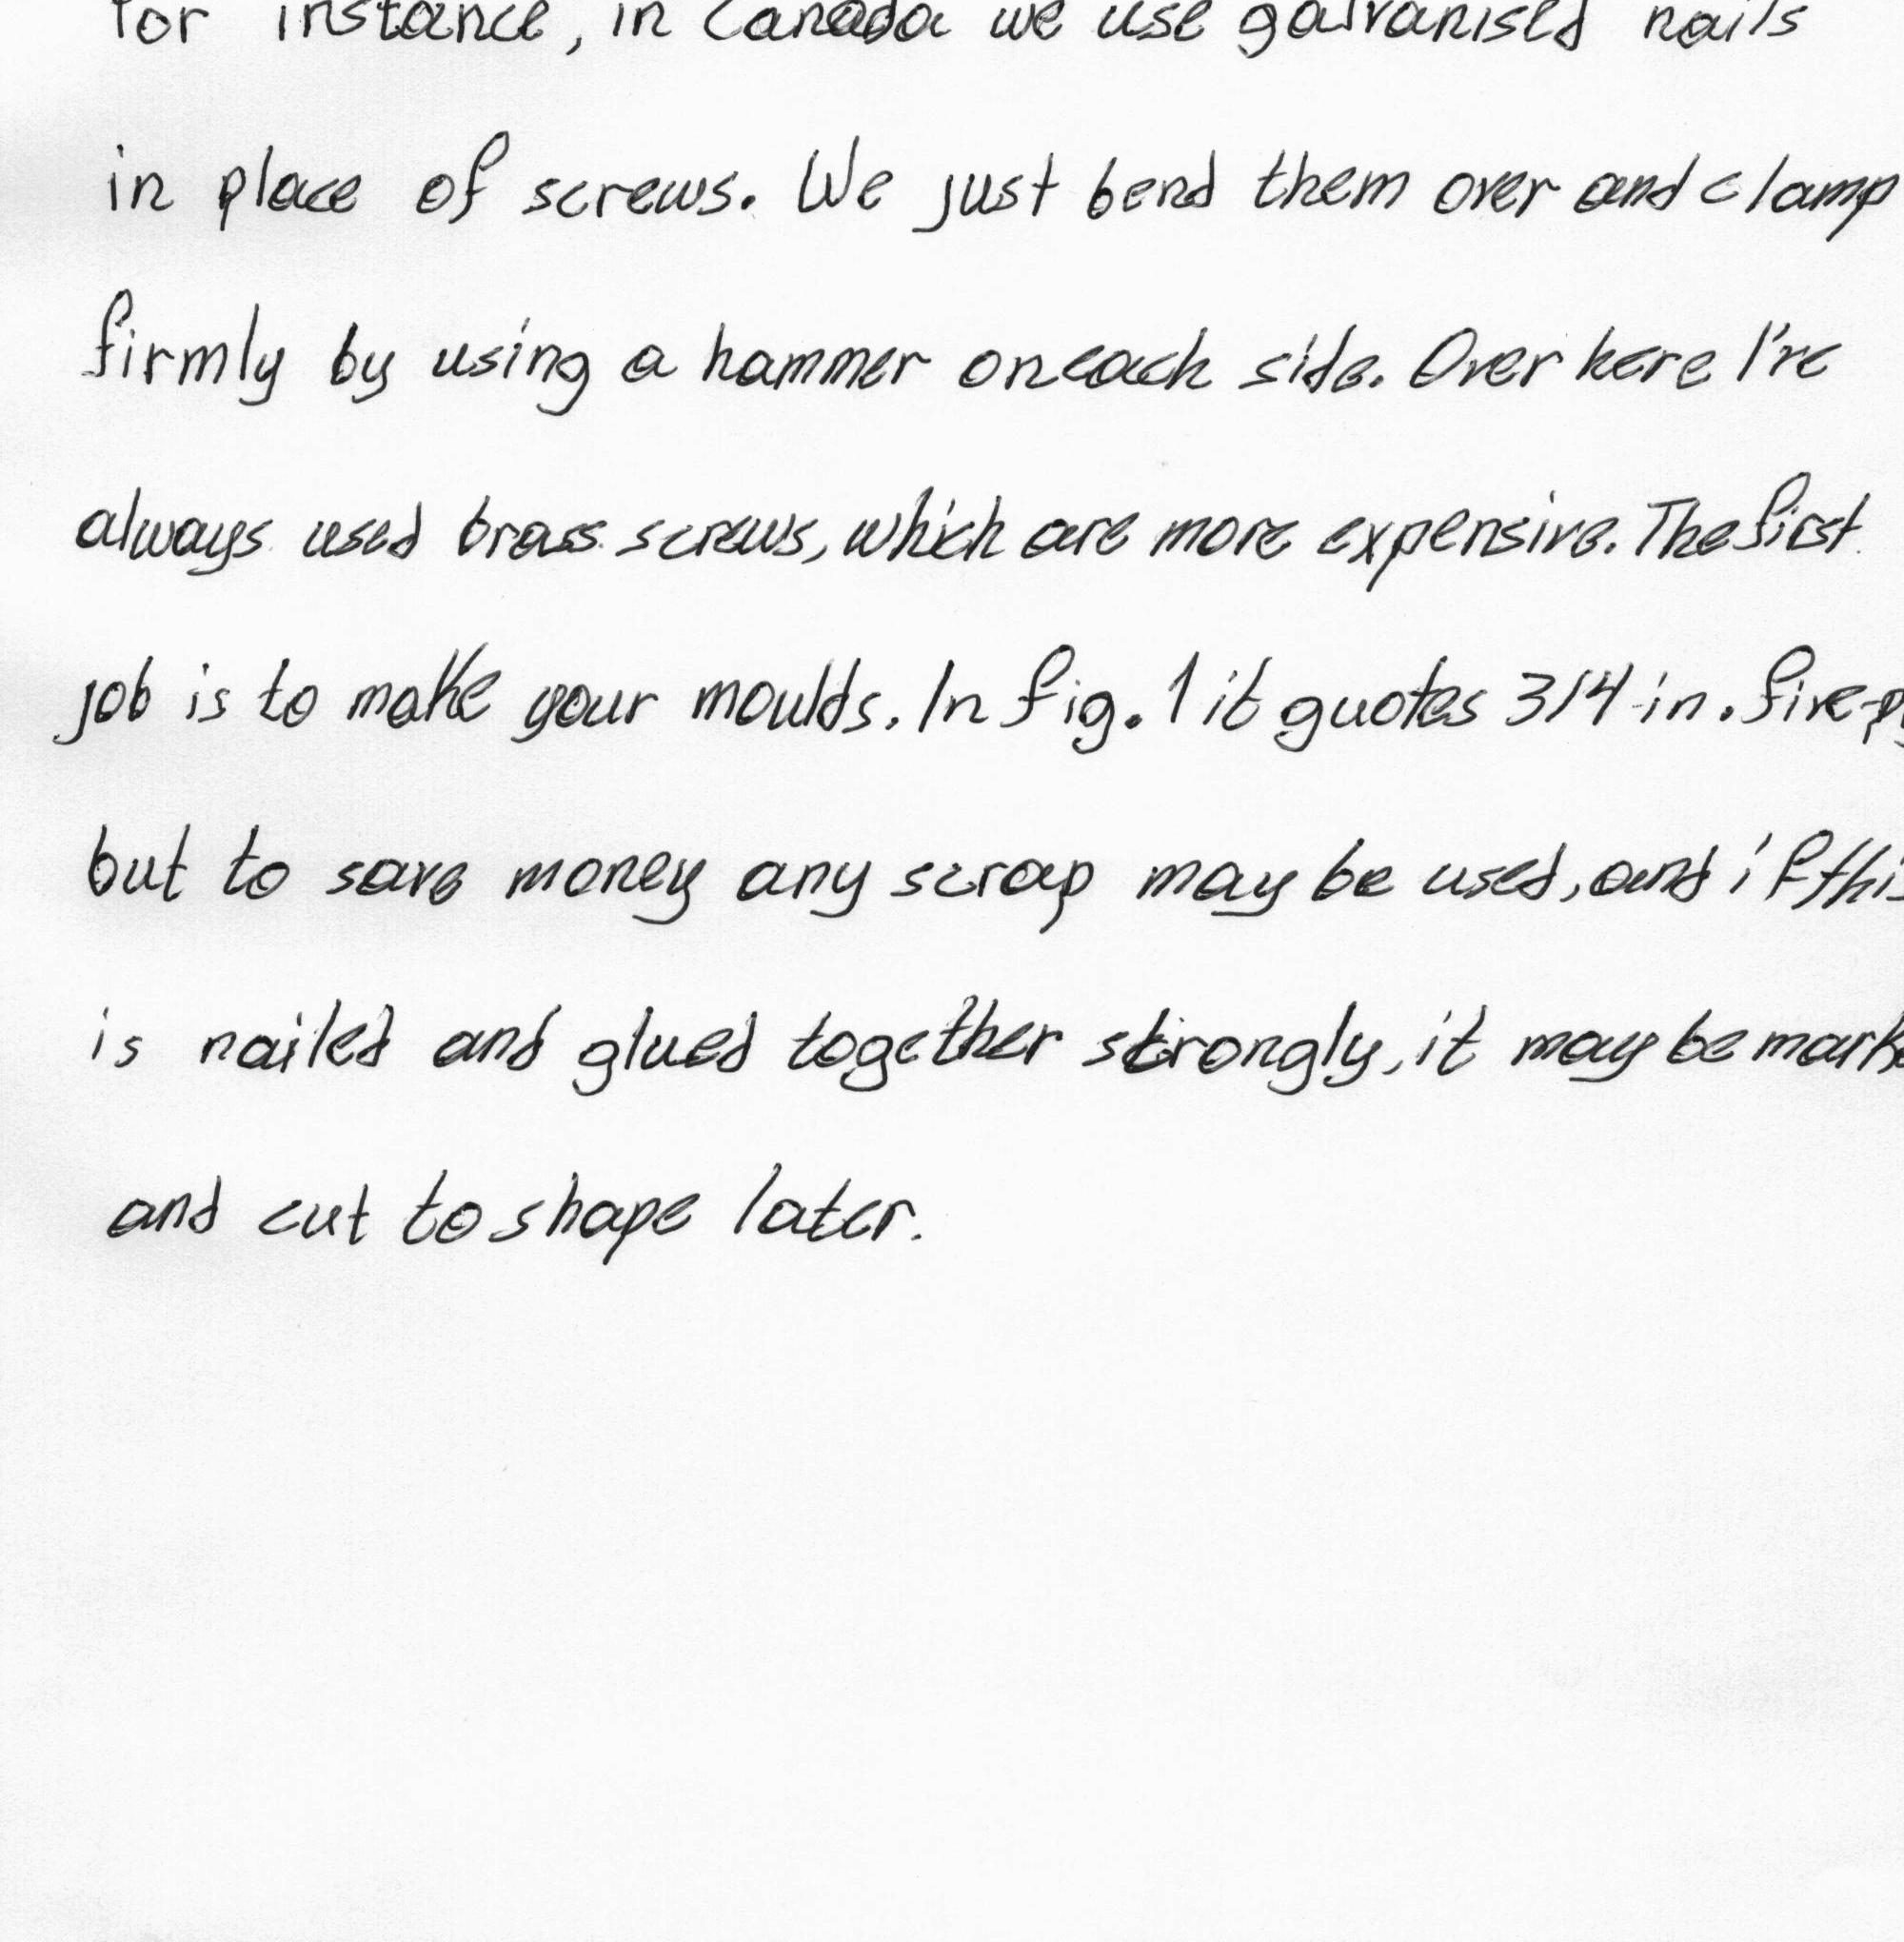 for instance, in Canada we use galvanised nails
in place of screws. We just bend them over and clamp
firmly by using a hammer on each side. Over here I've
always used brass screws, which are more expensive. The first
job is to make your moulds. In fig. 1 it quotes 3/4-in. five-p
but to save money any scrap may be used, and if this
is nailed and glued together strongly, it may be mark
and cut to shape later.